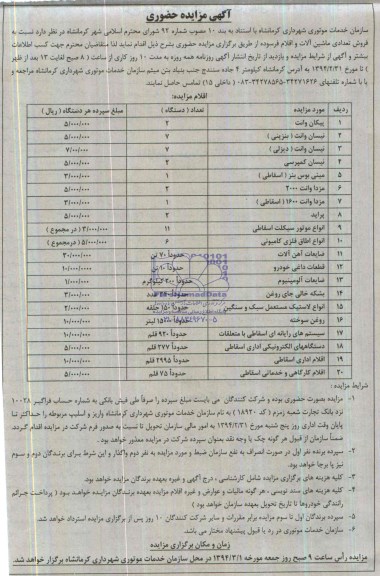 آگهی مزایده حضوری
سازمان خدمات موتوری شهرداری کرمانشاه با استناد به بند ۱۰ مصوب شماره ۹۲ شورای محترم اسلامی شهر کرمانشاه در نظر دارد نسبت به
فروش تعدادی ماشین آلات و اقلام فرسوده از طریق برگزاری مزایده حضوری بشرح ذیل اقدام نماید لذا متقاضیان محترم جهت کسب اطلاعات
بیشتر و آگهی از شرایط مزایده و بازدید از تاریخ انتشار آگهی روزنامه همه روزه به مدت ۱۰ روز کاری از ساعت ۸ صبح لغایت ۱۳ بعد از ظهر
( تا مورخ ۱۳۹۴/۲/۳۱ ) به آدرس کرمانشاه کیلومتر ۲ جاده سنندج جنب بنیاد بتن میثم سازمان خدمات موتوری شهرداری کرمانشاه مراجعه و
یا با شماره تلفنهای ۳۴۲۷۱۶۲۶-۳۴۲۷۸۵۶۵-۰۸۳ ( داخلی ۱۵) تماس حاصل نمایند.
اقلام مزایده:
ردیف مورد مزایده تعداد ( دستگاه ) مبلغ سپرده هر دستگاه ( ریال )
۱ پیکان وانت ۲ ۵/۰۰۰/۰۰۰
۲ نیسان وانت ( بنزینی ) ۷ ۵/۰۰۰/۰۰۰
۳ نیسان وانت ( دیزلی ) ۷ ۷/۰۰۰/۰۰۰
۴ نیسان کمپرسی ۲ ۵/۰۰۰/۰۰۰
۵ مینی بوس بنز ( اسقاطی ) ۱ ۳/۰۰۰/۰۰۰
۶ مزدا وانت ۲۰۰۰ ۲ ۵/۰۰۰/۰۰۰
۷ مزدا وانت ۱۶۰۰ ( اسقاطی ) ۱ ۳/۰۰۰/۰۰۰
۸ پراید ۲ ۵/۰۰۰/۰۰۰
۹ انواع موتور سیکلت اسقاطی ۱۱ ۳/۰۰۰/۰۰۰ ( در مجموع )
۱۰ انواع اطاق فلزی کامیونی ۶ ۵/۰۰۰/۰۰۰ (درمجموع )
۱۱ ضایعات آهن آلات حدوداً ۷۰ تن ۳۰/۰۰۰/۰۰۰
۱۲ قطعات داغی خودرو حدوداً ۱۰ تن ۱۰/۰۰۰/۰۰۰
۱۳ ضایعات آلومینیوم حدوداً کیلوگرم ۱/۰۰۰/۰۰۰
۱۴ بشکه خالی جای روغن حدوداً عدد ۳/۰۰۰/۰۰۰
۱۵ انواع لاستیک مستعمل سبک و سنگین حدوداً ۱۵۰ حلقه ۲/۰۰۰/۰۰۰
۱۶ روغن سوخت حدوداً لیتر ۱۰/۰۰۰/۰۰۰
۱۷ سیستم های رایانه ای اسقاطی با متعلقات حدوداً ۹۲۰ قلم ۵/۰۰۰/۰۰۰
۱۸ دستگاههای الکترونیکی اداری اسقاطی حدوداً ۲۷۷ قلم ۵/۰۰۰/۰۰۰
۱۹ اقلام اداری اسقاطی حدوداً ۲۹۹۵ قلم ۱۰/۰۰۰/۰۰۰
۲۰ اقلام کارگاهی و خدماتی اسقاطی حدوداً ۷۵ قلم ۵/۰۰۰/۰۰۰
شرایط مزایده :
۱- مزایده بصورت حضوری بوده و شرکت کنندگان می بایست مبلغ سپرده را صرفاً طی فیش بانکی به شماره حساب فراگیر ۱۰۰۲۸
نزد بانک تجارت شعبه زمزم ( کد ۱۸۹۲۰ ) به نام سازمان خدمات موتوری شهرداری کرمانشاه واریز و اسلیپ مربوطه را حداکثر تا
پایان وقت اداری روز پنج شنبه مورخ ۱۳۹۴/۲/۳۱ به امور مالی سازمان تحویل تا نسبت به صدور فرم شرکت در مزایده اقدام گردد.
ضمناً سازمان از قبول هر گونه چک یا وجه نقد بعنوان سپرده شرکت در مزایده معذور خواهد بود.
۲- سپرده برنده نفر اول در صورت انصراف به نفع سازمان ضبط و مورد مزایده به نفر دوم واگذار و این شرط برای برندگان دوم و سوم
نیز پا برجا خواهد بود.
۳- کلیه هزینه های برگزاری مزایده شامل کارشناسی ، درج آگهی و غیره بعهده برندگان مزایده خواهد بود.
۴- کلیه هزینه های سند نویسی ، هر گونه مالیات و عوارض و غیره اقلام مزایده بعهده برندگان مزایده خواهد بود ( پرداخت جرائم
رانندگی خودروها تا تاریخ تحویل بعهده سازمان خواهد بود )
۵- سپرده برندگان اول تا سوم مزایده برابر مقررات و سایر شرکت کنندگان ۱۰ روز پس از برگزاری مزایده استرداد خواهد شد.
۶- سازمان خدمات موتوری در رد یا قبول پیشنهاد مختار می باشد.
زمان و مکان برگزاری مزایده
مزایده رأس ساعت ۹ صبح روز جمعه مورخه ۱۳۹۴/۳/۱ در محل سازمان خدمات موتوری شهرداری کرمانشاه برگزار خواهد شد.